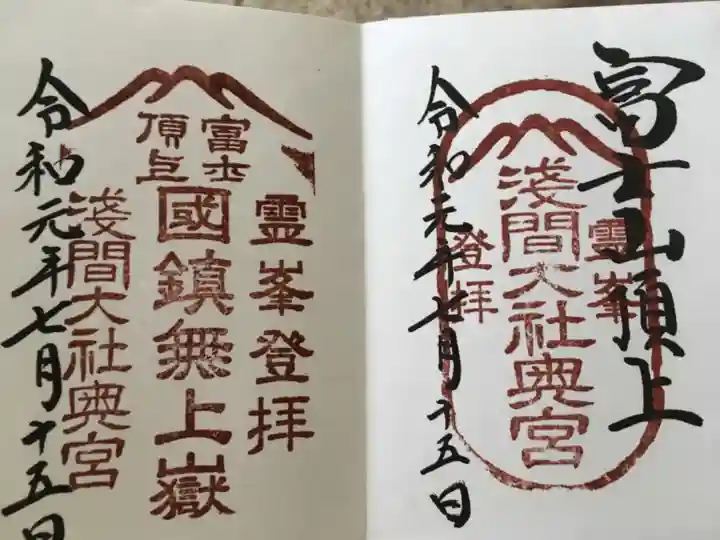 富士山頂上
霊峯登拝
淺間大社奥宮
令和元年七月十五日
富士頂上
霊峯登拝
國鎮無上嶽
淺間大社奥宮
令和元年七月十五日